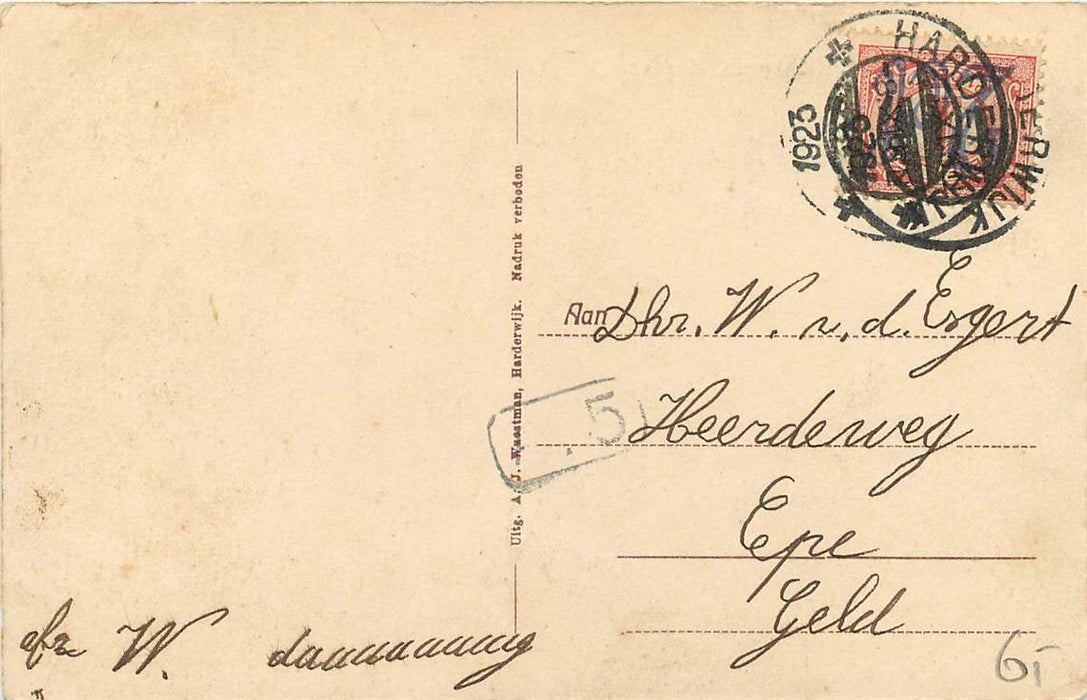 HARDERWIJK
1923
Uitg. A. J. Wuestman, Harderwijk. Nadruk verboden
Aan Dhr. W. v. d. Ergert
Heerderweg
Epe
Geld
5
W.
6,-